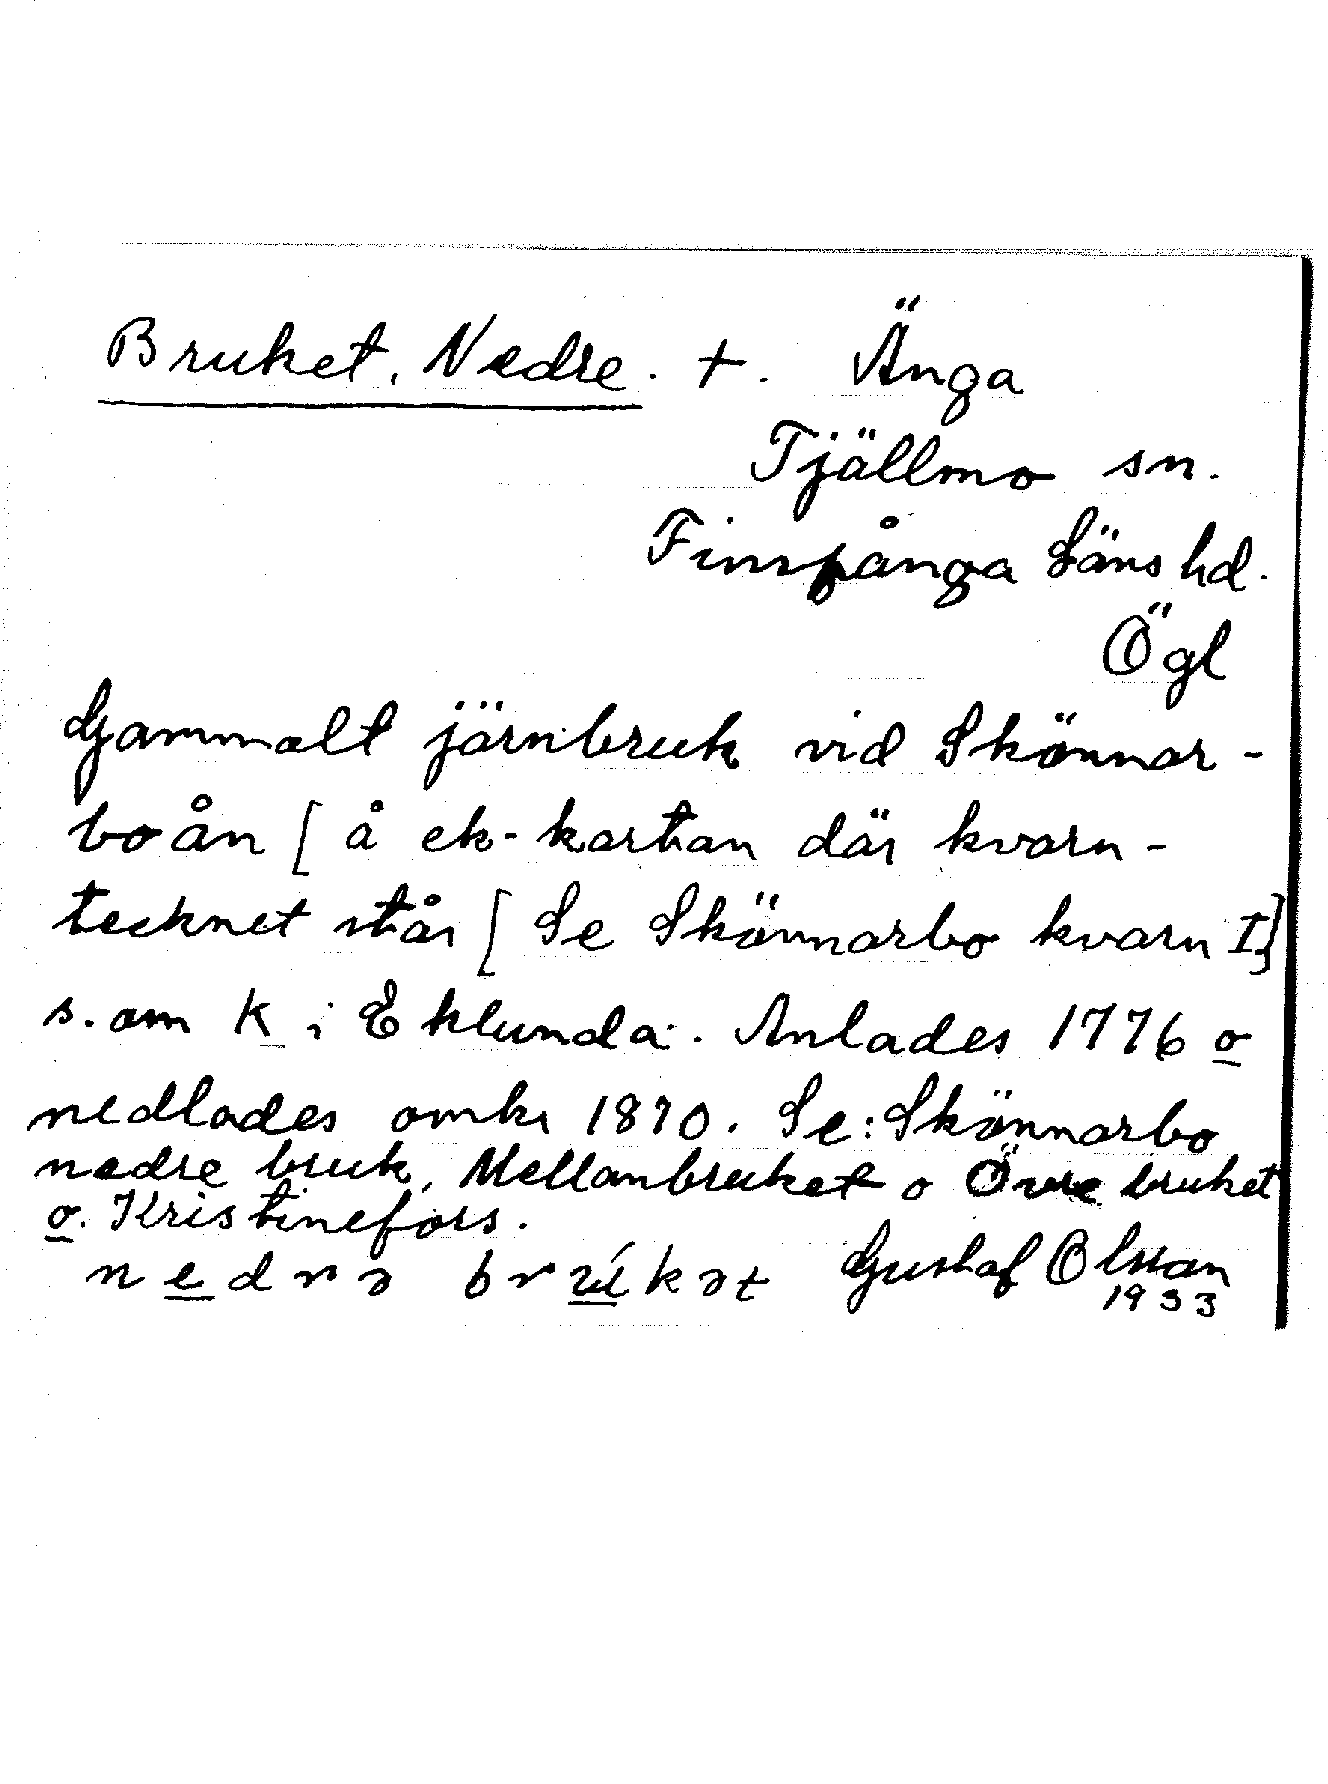 Bruket, Nedre. +. Änga
Tjällmo sn.
Finspånga Läns hd.
Ögl
Gammalt järnbruk vid Skönnar-
boån [ å ek-kartan där kvarn-
tecknet står [ Se Skönnarbo kvarn I]
s. om K i Eklunda. Anlades 1776 o
nedlades omkr 1870. Se: Skönnarbo
nedre bruk, Mellanbruket o Övre bruket
o. Kristinefors.
nedrə brúkət Gustaf Olsson
1933